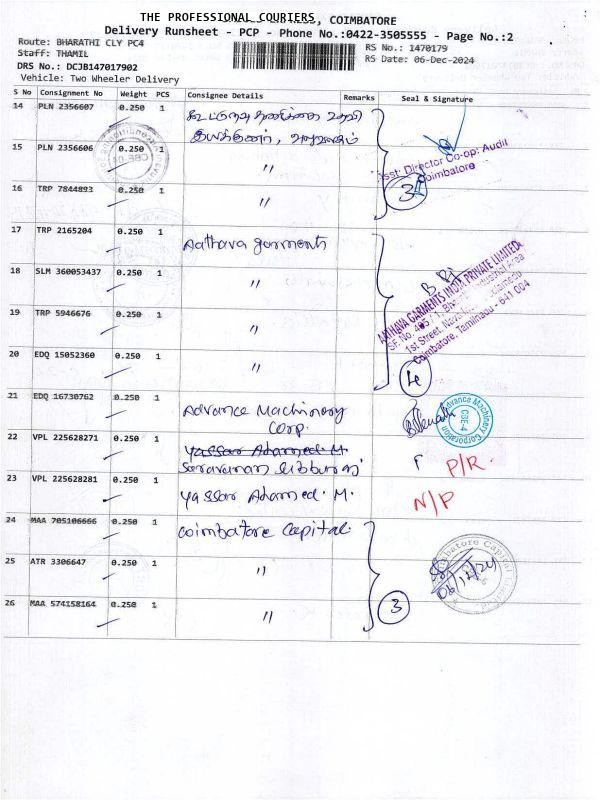 THE PROFESSIONAL COURIERS, COIMBATORE
Delivery Runsheet - PCP - Phone No.:0422-3505555 - Page No.:2
Route: BHARATHI CLY PC4
Staff: THAMIL
DRS No.: DCJB147017902
Vehicle: Two Wheeler Delivery
RS No.: 1470179
RS Date: 06-Dec-2024
S No Consignment No Weight PCS Consignee Details Remarks Seal & Signature
14 PLN 2356607 0.250 1 கூட்டுறவு தணிக்கை உதவி
இயக்குனர், அலுவலகம்
15 PLN 2356606 0.250 1 "
Asst. Director Co-op: Audit
Coimbatore
16 TRP 7844893 0.250 1 "
3
17 TRP 2165204 0.250 1 Aathava garments
18 SLM 360053437 0.250 1 "
AATHAVA GARMENTS INDIA PRIVATE LIMITED
1st Street,
Coimbatore, Tamilnadu - 641 004
19 TRP 5946676 0.250 1 "
20 EDQ 15052360 0.250 1 "
4
21 EDQ 16730762 0.250 1 Advance Machinery
Corp.
Advance Machinery Corporation
CBE-4
22 VPL 225628271 0.250 1 Yassar Ahamed. M.
Saravanan
P/R.
23 VPL 225628281 0.250 1 Yassar Ahamed. M.
N/P
24 MAA 705106666 0.250 1 Coimbatore Capital.
25 ATR 3306647 0.250 1 "
Coimbatore Capital Limited
06/12/24
26 MAA 574158164 0.250 1 "
3